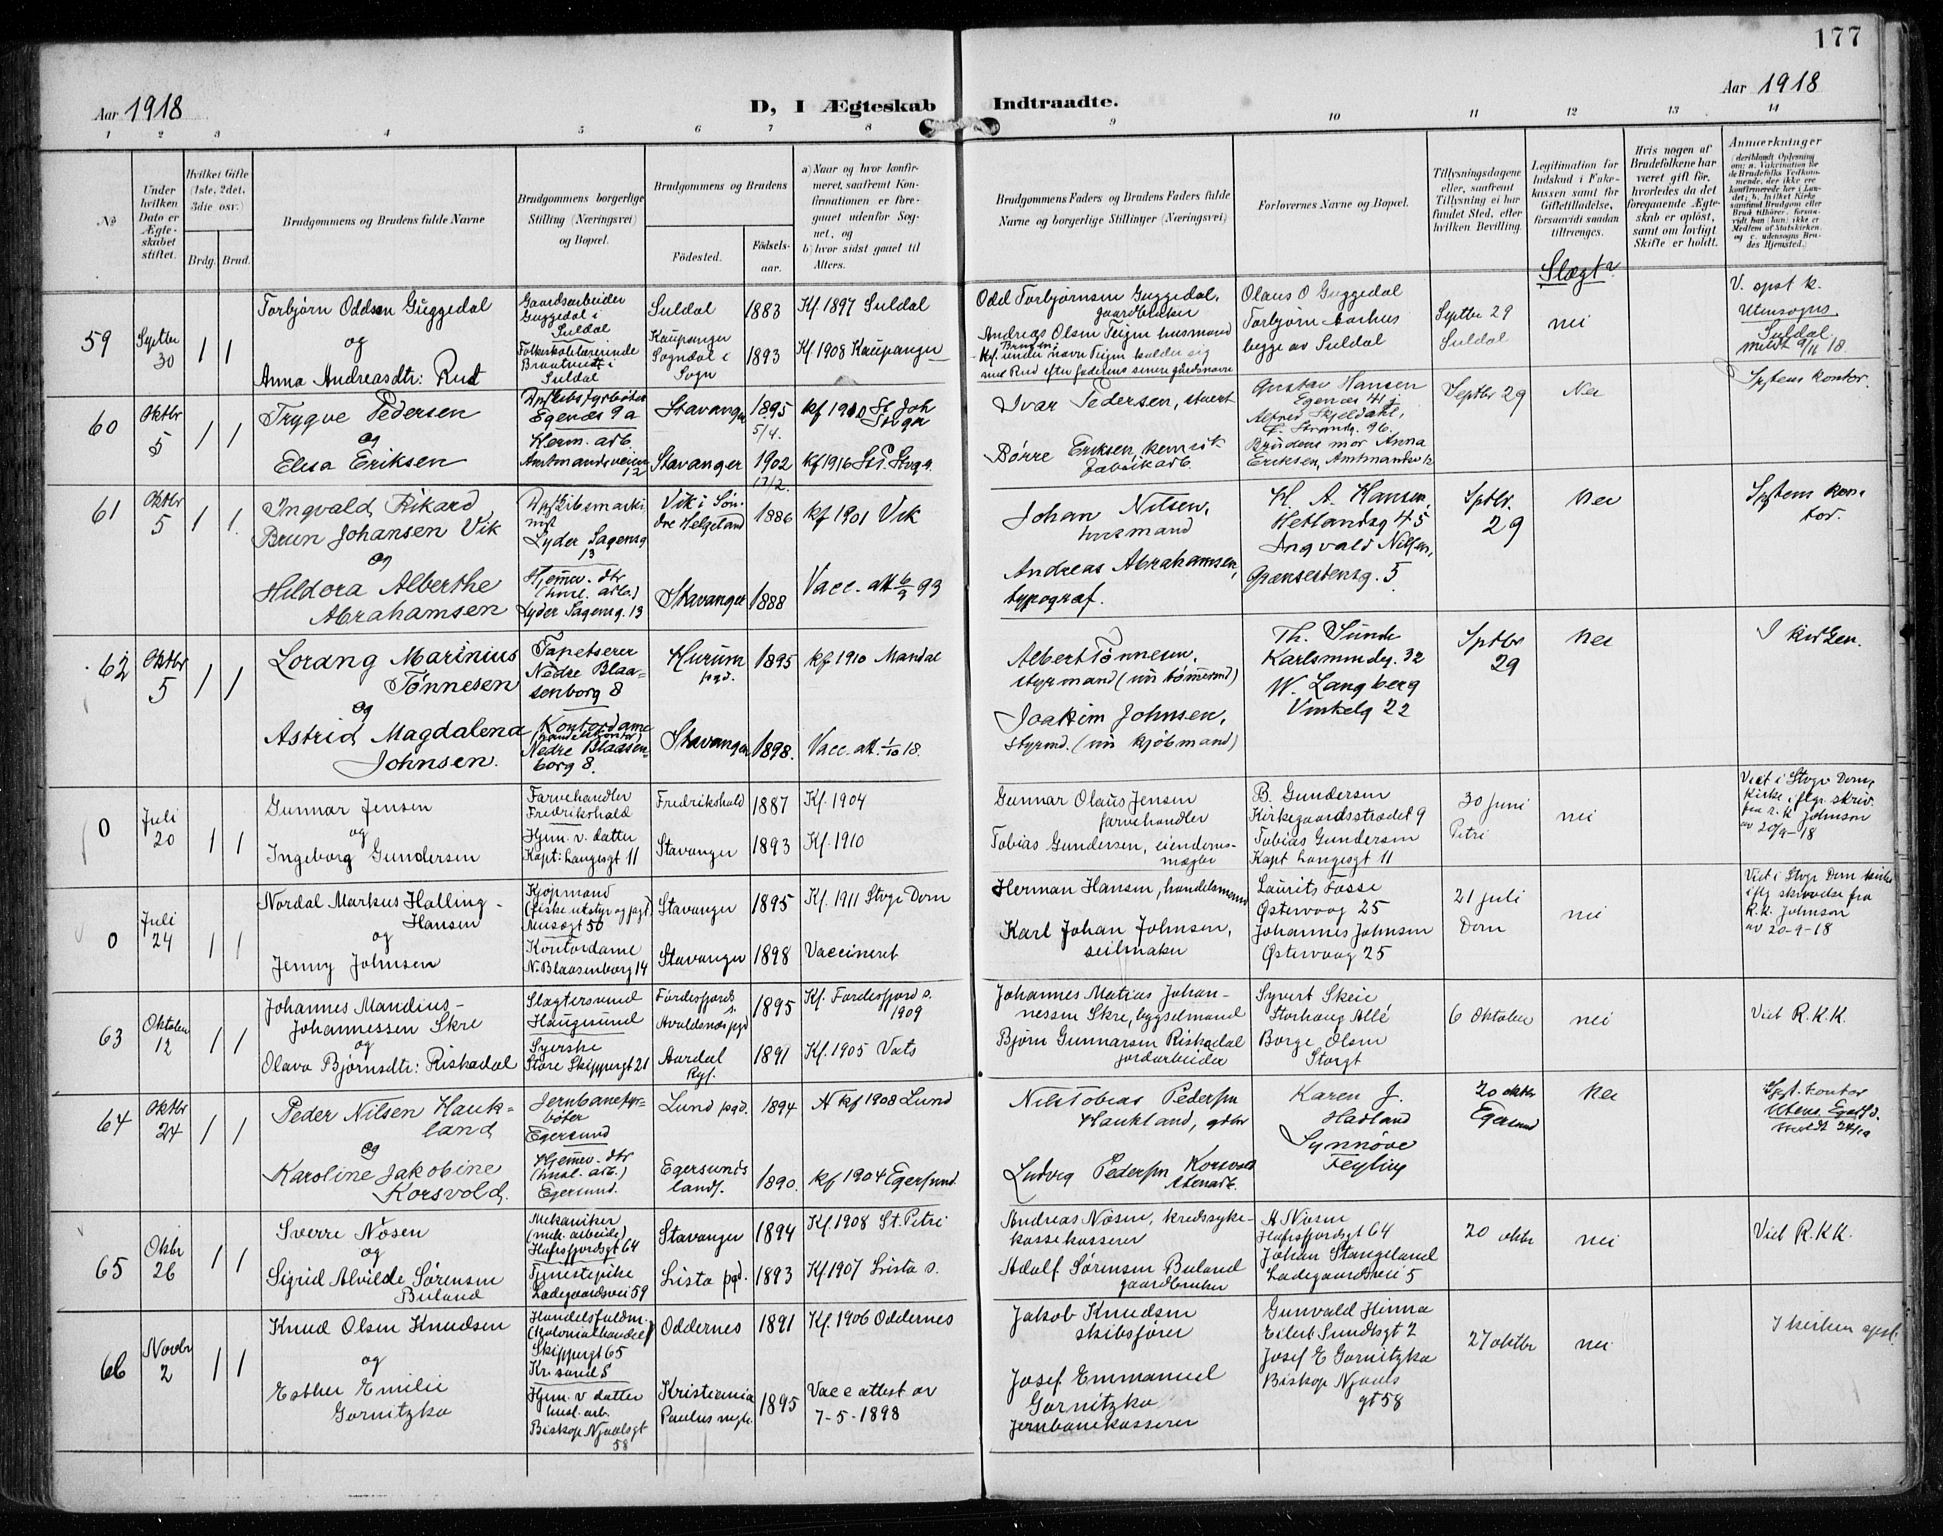 177
Aar 1918
D, I Ægteskab Indtraadte.
Aar 1918
1 2 3 4 5 6 7 8 9 10 11 12 13 14
No
Under hvilken Dato er Ægteskabet stiftet.
Hvilket Gifte (1ste, 2det, 3die osv.)
Brdg. Brud.
Brudgommens og Brudens fulde Navne
Brudgommens borgerlige Stilling (Næringsvei) og Bopæl.
Brudgommens og Brudens
Fødested.
Fødselsaar.
a) Naar og hvor konfirmeret, saafremt Konfirmationen er foregaaet udenfor Sognet, og
b) hvor sidst gaaet til Alters.
Brudgommens Faders og Brudens Faders fulde Navne og borgerlige Stillinger (Næringsvei)
Forlovernes Navne og Bopæl.
Tillysningsdagene eller, saafremt Tillysning ei har fundet Sted, efter hvilken Bevilling.
Legitimation for Indskud i Enkekassen samt for Giftetilladelse, forsaavidt saadan tiltrænges.
Slægt?
Hvis nogen af Brudefolkene har været gift før, hvorledes da det foregaaende Ægteskab er opløst, samt om lovligt Skifte er holdt.
Anmærkninger
59
Septbr 30
1 1
Torbjørn Oddsen Guggedal
og
Anna Andreasdtr: Rud
Gaardsarbeider
Guggedal i
Suldal
Folkeskolelærerinde
Suldal
Suldal
Kaupanger
Sogndal i
Sogn
1883
1893
Kf 1897 Suldal
Kf. 1908 Kaupanger
Odd Torbjørnsen Guggedal,
gaardbruker
Andreas Olsen Teigen husmand
Olaus O Guggedal
Torbjørn Aarhus
begge av Suldal
Septbr 29
Suldal
nei
V. spst k.
Utensogns
Suldal
meldt 9/11 18.
60
Oktbr 5
1 1
Trygve Pedersen
og
Elisa Eriksen
Egenæs 9a
Herm. arb.
Amtmandsveien 12
Stavanger
Stavanger
1895
5/4.
1902
17/2.
kf 1910 St. Joh
Stvgr
kf 1916 St P. Stvgr.
Ivar Pedersen, stuert
Børre Eriksen, hermetikfabrikarb.
Gustav Hansen
Egenæs 41 j
Alfred Skjeldahl,
Ø. Strandg. 96.
Brudens mor Anna
Eriksen, Amtmandsv 12
Septbr 29
Nei
Sptens kontor.
61
Oktbr 5
1 1.
Ingvald Rikard
Brun Johansen Vik
og
Hildora Alberthe
Abrahamsen
Lyder Sagensg
13
Hjemmev. dtr
(husl. arb.)
Lyder Sagensg. 13
Vik i Søndre Helgeland
Stavanger
1886
1888
kf 1901 Vik
Vacc. att 6/9 93
Johan Nilsen,
husmand
Andreas Abrahamsen,
typograf.
H. A. Hansen,
Hetlandsg 45
Ingvald Nilsen,
Grænsestensg. 5
Sptbr.
29
Nei
Sptens kontor.
62
Oktbr 5
1 1
Lorang Marinius
Tønnesen
og
Astrid Magdalena
Johnsen.
Tapetserer
Nedre Blaasenborg 8
Kontordame
Nedre Blaasenborg 8.
Hurum
pgd.
Stavanger
1895
1898.
kf 1910 Mandal
Vacc. att. 1/10 18.
Albert Tønnesen,
styrmand (nu tømmermd)
Joakim Johnsen,
styrmd. (nu kjøbmand)
Th. Sunde
Karlsmindeg. 32
W. Langberg
Vinkelg 22
Sptbr
29
Nei
I kirken.
0
Juli 20
1 1
Gunnar Jensen
og
Ingeborg Gundersen
Farvehandler
Fredrikshald
Hjem. v. datter
Kapt: Langesgt 11
Fredrikshald
Stavanger
1887
1893
Kf. 1904
Kf. 1910
Gunnar Olaus Jensen
farvehandler
Tobias Gundersen, eiendomsmægler
B. Gundersen
Kirkegaardsstrædet 9
Tobias Gundersen
Kapt Langesgt 11
30 juni
Petri
nei
Viet i Stvgr Dom,
Kirke iflgr. skriv.
fra r. k. Johnson
av 20/9-18
0
Juli 24
1 1
Nordal Markus Halling-
Hansen
og
Jenny Johnsen
Kjøpmand
(fiske utstyr og fagt)
Nusøgt 50
Kontordame
N. Blaasenborg 14
Stavanger
Stavanger
1895
1898
Kf. 1911 Stvgr Dom
Vaccineret
Herman Hansen, handelsmand
Karl Johan Johnsen,
seilmaker
Laurits Fosse
Østervaag 25
Johannes Johnsen
Østervaag 25
21 juli
Dom
nei
Viet i Stvgr Dom kirke
iflg skrivelse fra
R. K. Johnson
av 20-9-18
63
Oktober 12
1 1
Johannes Mandius-
Johannessen Skre
og
Olava Bjørnsdtr: Riskadal
Slagtersvend
Haugesund
Syerske
Store Skippergt 21
Førdesfjords s.
Avaldsnes pgd
Aardal
Ryf.
1895
1891
Kf. Førdesfjord s.
1909
Kf. 1905 Vats
Johannes Matias Johannessen Skre, bygselmand
Bjørn Gunnarsen Riskadal
jordarbeider
Syvert Skeie
Storhaug Allé
Børge Olsen
Storgt
6 oktober
nei
Viet R.K.K.
64
Oktbr 24
1 1
Peder Nilsen Haukland
og
Karoline Jakobine
Korsvold.
Jernbanefyrbøter
Egersund
Hjemmev. dtr
(husl. arb.)
Egersund.
Lund pgd.
Egersunds
lands.
1894
1890.
kf 1908 Lund
kf 1904 Egersund.
Nils Tobias Pedersen
Haukland, gdbr
Ludvig Pedersen Korsvold
Karen J.
Hadland
Synnøve
Feyling
20 oktbr
Egersund
Nei
Spt. kontor
Utens Egersd.
meldt 24/10
65
Oktbr 26
1 1
Sverre Nösen
og
Sigrid Alvilde Sørensen
Buland
Mekaniker
(mek. arbeide)
Hafrsfjordsgt 64
Tjenestepike
Ladegaardsvei 59
Stavanger
Lista pgd.
1894
1893
Kf. 1908 St. Petri
Kf 1907 Lista s.
Andreas Nösen, kredssykekassekasserer
Adolf Sørensen Buland
gaardbruker
A Nösen
Hafrsfjordsgt 64
Johan Stangeland
Ladegaardsvei 5
20 oktbr
nei
Viet R.K.K.
66
Novbr 2
1 1
Knud Olsen Knudsen
og
Esther Emilie
Gornitzka
Handelsfuldm.
(kolonialhandel)
Skippergt 65
Kr. sand S
Hjem. v datter
husl. arb.
Biskop Njaalsgt
58
Oddernes
Kristiania
Paulus mgh.
1891
1895
Kf. 1906 Oddernes
Vacc attest av
7-5-1898
Jakob Knudsen
skibsfører
Josef Emmanuel
Gornitzka
jernbanekasserer
Gunvald Hinna
Eilert Sundtsgt 2
Josef E Gornitzka
Biskop Njaals
gt 58
27 oktbr
nei
I kirken spst.